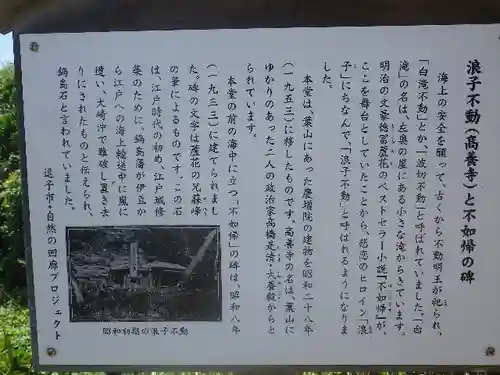 浪子不動(高養寺)と不如帰の碑
海上の安全を願って、古くから不動明王が祀られ、
「白滝不動」とか、「波切不動」と呼ばれていました。「白
滝」の名は、左奥の崖にある小さな滝からきています。
明治の文豪徳冨蘆花のベストセラー小説『不如帰』が、
ここを舞台としていたことから、悲恋のヒロイン「浪
子」にちなんで、「浪子不動」と呼ばれるようになりま
した。
本堂は、葉山にあった慶増院の建物を昭和二十八年
(一九五三)に移したものです。高養寺の名は、葉山に
ゆかりのあった二人の政治家高橋是清・犬養毅からと
られています。
本堂の前の海中に立つ、「不如帰」の碑は、昭和八年
(一九三三)に建てられまし
た。碑の文字は蘆花の兄蘇峰
の筆によるものです。この石
は、江戸時代の初め、江戸城修
築のために、鍋島藩が伊豆か
ら江戸への海上輸送中に嵐に
遭い、大崎沖で難破し置き去
りにされたものと伝えられ、
鍋島石と言われていました。
逗子市・自然の回廊プロジェクト
昭和初期の浪子不動